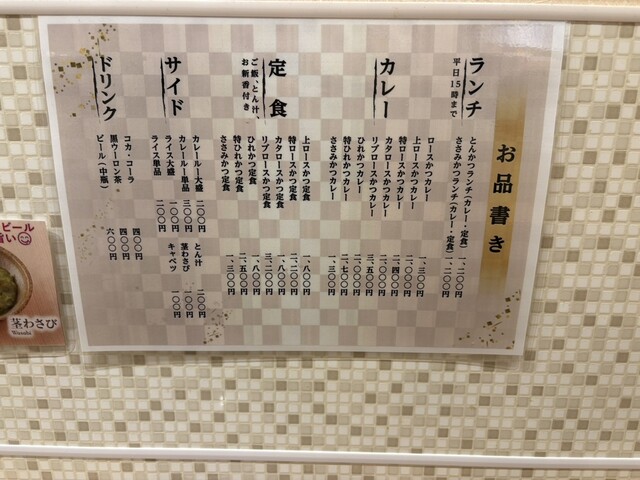 お品書き
ランチ
平日15時まで
とんかつランチ(カレー・定食) 一、二〇〇円
ささみかつランチ(カレー・定食) 一、二〇〇円
カレー
ロースかつカレー 一、三〇〇円
上ロースかつカレー 一、八〇〇円
特ロースかつカレー 二、四〇〇円
カタロースかつカレー 二、〇〇〇円
リブロースかつカレー 三、五〇〇円
ひれかつカレー 二、〇〇〇円
特ひれかつカレー 二、七〇〇円
ささみかつカレー 一、三〇〇円
定食
ご飯、とん汁、
お新香付き
上ロースかつ定食 一、八〇〇円
特ロースかつ定食 二、二〇〇円
カタロースかつ定食 一、八〇〇円
リブロースかつ定食 三、二〇〇円
ひれかつ定食 一、八〇〇円
特ひれかつ定食 二、五〇〇円
ささみかつ定食 一、三〇〇円
サイド
カレールー大盛 二〇〇円
カレールー単品 三〇〇円
ライス大盛 一〇〇円
ライス単品 二〇〇円
とん汁 二〇〇円
茎わさび 一〇〇円
キャベツ 一〇〇円
ドリンク
コカ・コーラ 四〇〇円
黒ウーロン茶 四〇〇円
ビール(中瓶) 六〇〇円
ビール
旨い
茎わさび
Wasabi